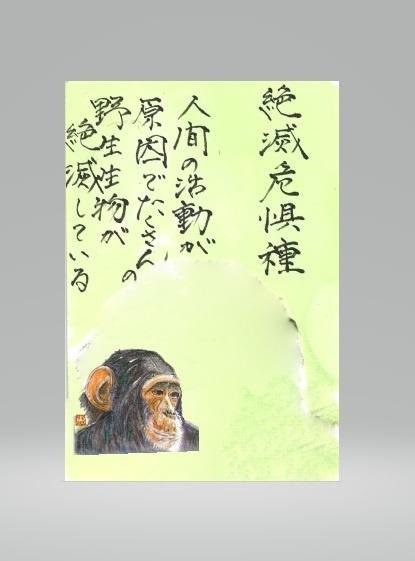 絶滅危惧種
人間の活動が
原因でたくさんの
野生生物が
絶滅している